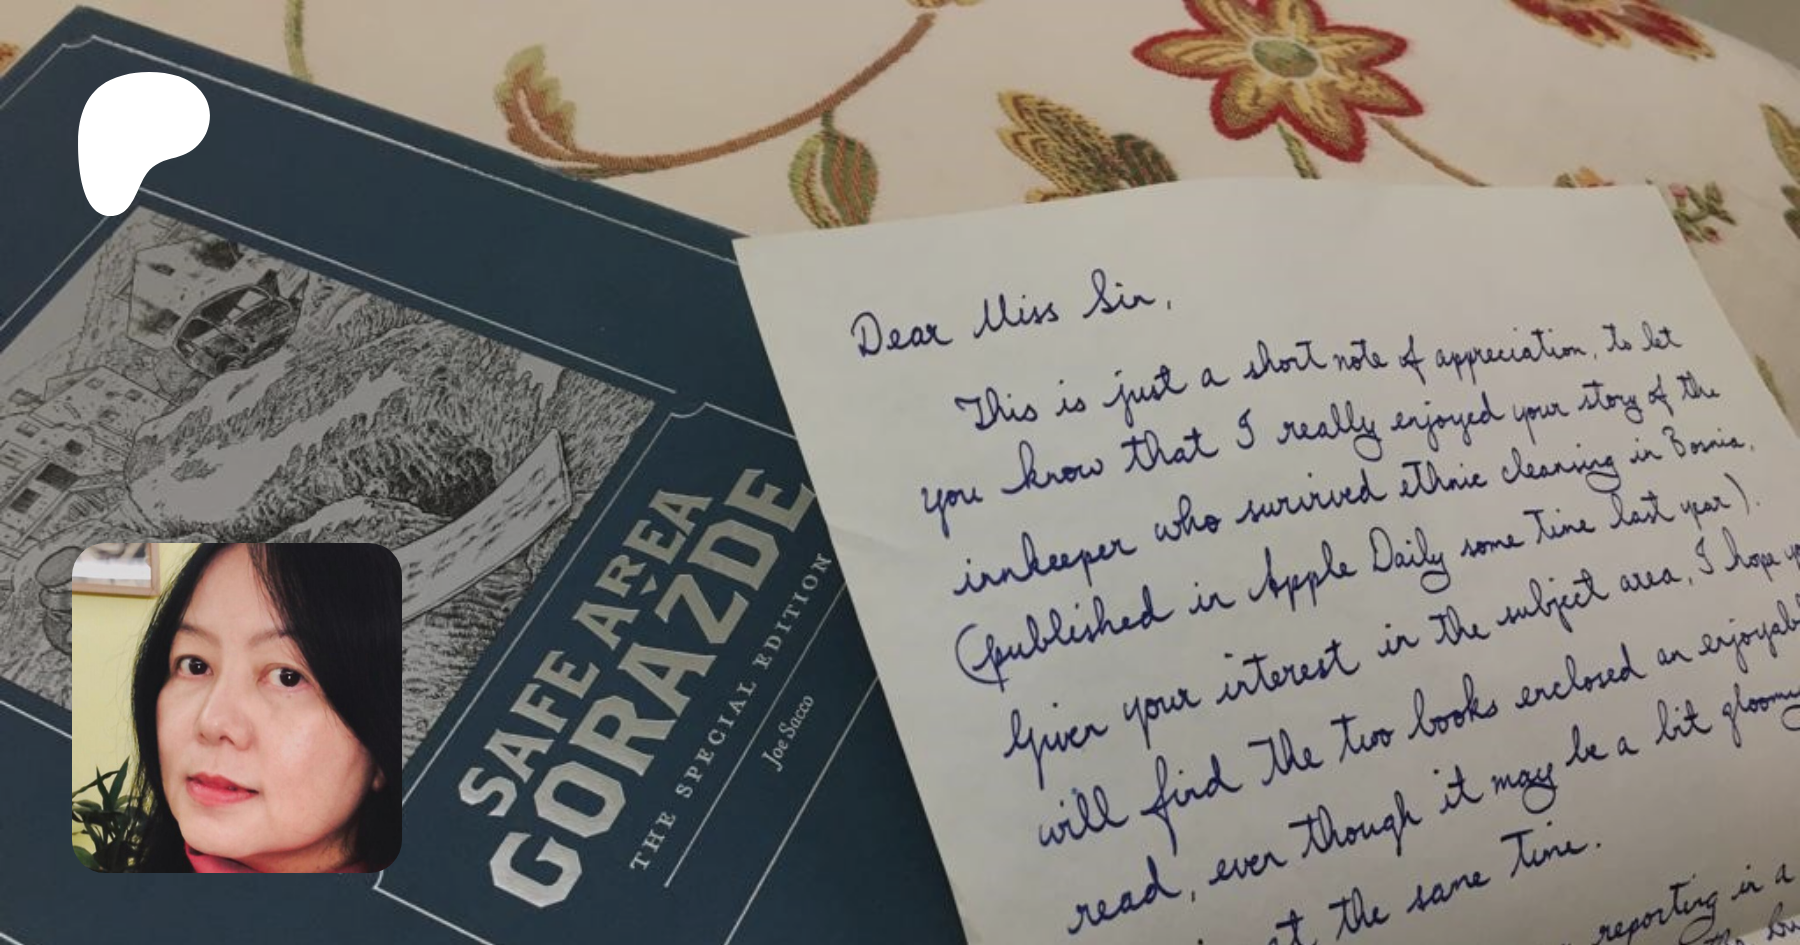 SAFE AREA
GORAŽDE
THE SPECIAL EDITION
Joe Sacco
Dear Miss Sin,
This is just a short note of appreciation, to let
you know that I really enjoyed your story of the
innkeeper who survived ethnic cleansing in Bosnia,
(published in Apple Daily some time last year).
Given your interest in the subject area, I hope
will find the two books enclosed an
read, even though it may be a bit
at the same time.
reporting in a